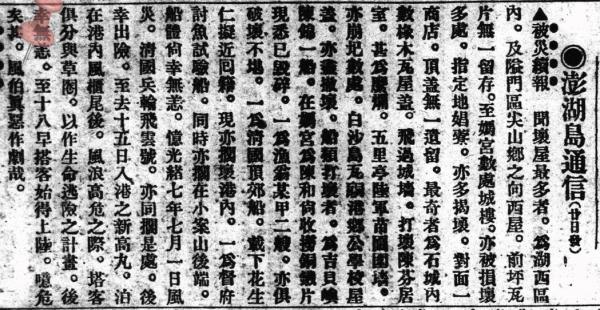 ◉澎湖島通信(廿日發)
▲被災續報　聞壞屋最多者。為湖西區
內。及隘門區尖山鄉之向西屋。前坪瓦
片無一留存。至媽宮數處城樓。亦被損壞
多處。指定地娼寮。亦多揭壞。對面一
商店。頂蓋無一遺留。最奇者為石城內
數椽木瓦屋蓋。飛過城墻。打壞陳芬居
室。甚為糜爛。五里亭陸軍苗圃圍墻。
亦崩圯數處。白沙島瓦硐港鄉公學校屋
蓋。亦盡壞。船類打壞者。為吉貝嶼
陳錦一船。在媽宮為陳和尚收撈銅鐵片
現悉已毀碎。一為漁翁某甲二艘。亦俱
破壞不堪。一為清國頂郊船。載下花生
仁擬近回籍。現亦擱壞港內。一為督府
討魚試驗船。同時亦擱在小案山後端。
船體尚幸無恙。憶光緒七年七月一日風
災。清國兵輪飛雲號。亦同擱是處。後
幸出險。至去十五日入港之新高丸。泊
在港內風櫃尾後。風浪高危之際。搭客
俱分與草圈。以作生命逃險之計畫。後
幸無恙。至十八早搭客始得上陸。噫危
矣哉。風伯其惡作劇哉。